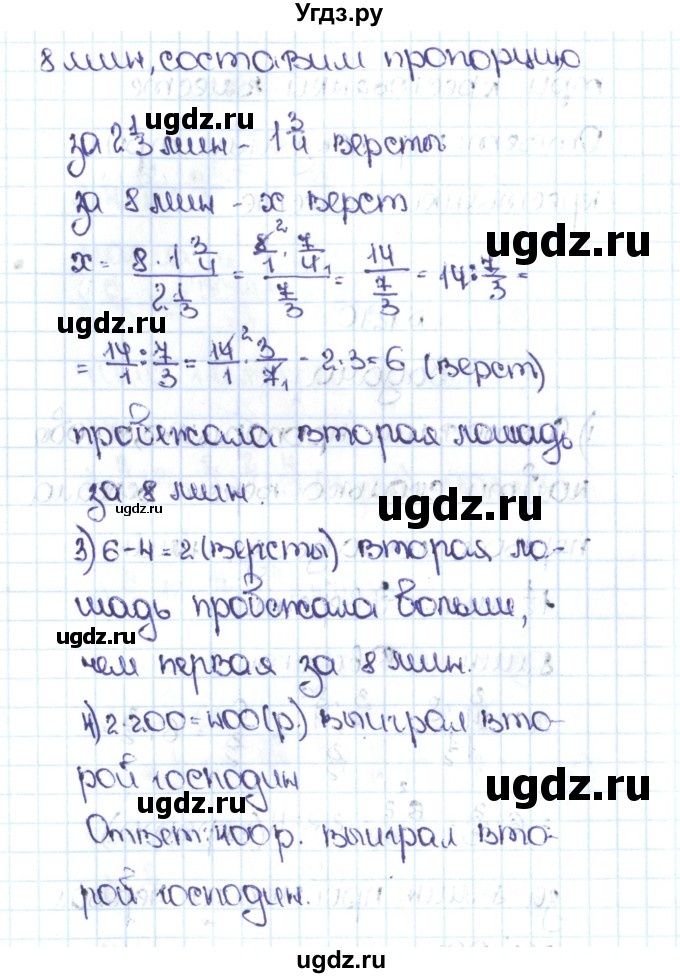 Угдз.ру
8 мин, составим пропорцию
ugdz.ru
за 2 1/3 мин - 1 3/4 версты
за 8 мин - x верст
ugdz.ru
ugdz.ru
x = (8 · 1 3/4)/(2 1/3) = (8/1 · 7/4)/(7/3) = 14/(7/3) = 14 : 7/3 =
ugdz.ru
= 14/1 : 7/3 = 14/1 · 3/7 - 2·3=6 (верст)
пробежала вторая лошадь
за 8 мин.
ugdz.ru
ugdz.ru
3) 6-4=2 (версты) вторая ло-
шадь пробежала больше,
ugdz.ru
чем первая за 8 мин.
4) 2·200=400(р.) выиграл вто-
рой господин
ugdz.ru
ugdz.ru
Ответ: 400 р. выиграл вто-
рой господин.
ugdz.ru